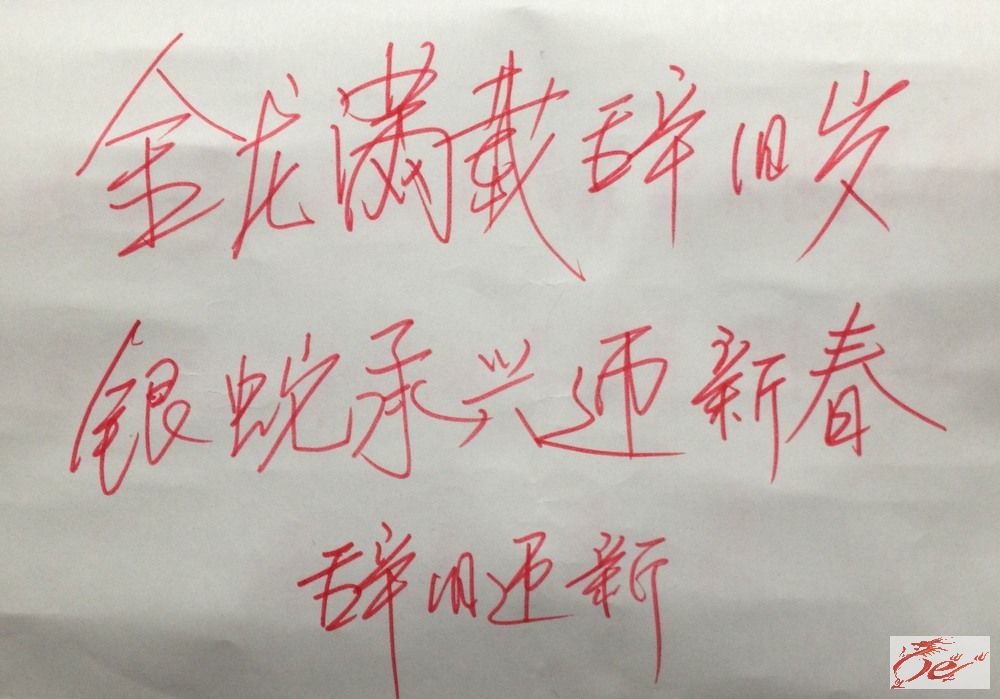 金龙满载辞旧岁
银蛇承兴迎新春
辞旧迎新